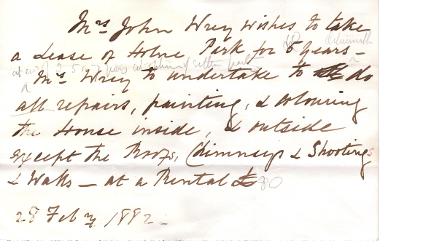 Mrs John Wrey wishes to take
a Lease of Holne Park for 5 years —
Mrs Wrey to undertake to do
all repairs, painting, & colouring
the House inside, & outside
except the Roofs, Chimneys & Shootings
& Walks — at a Rental £80
28 Feby 1882.